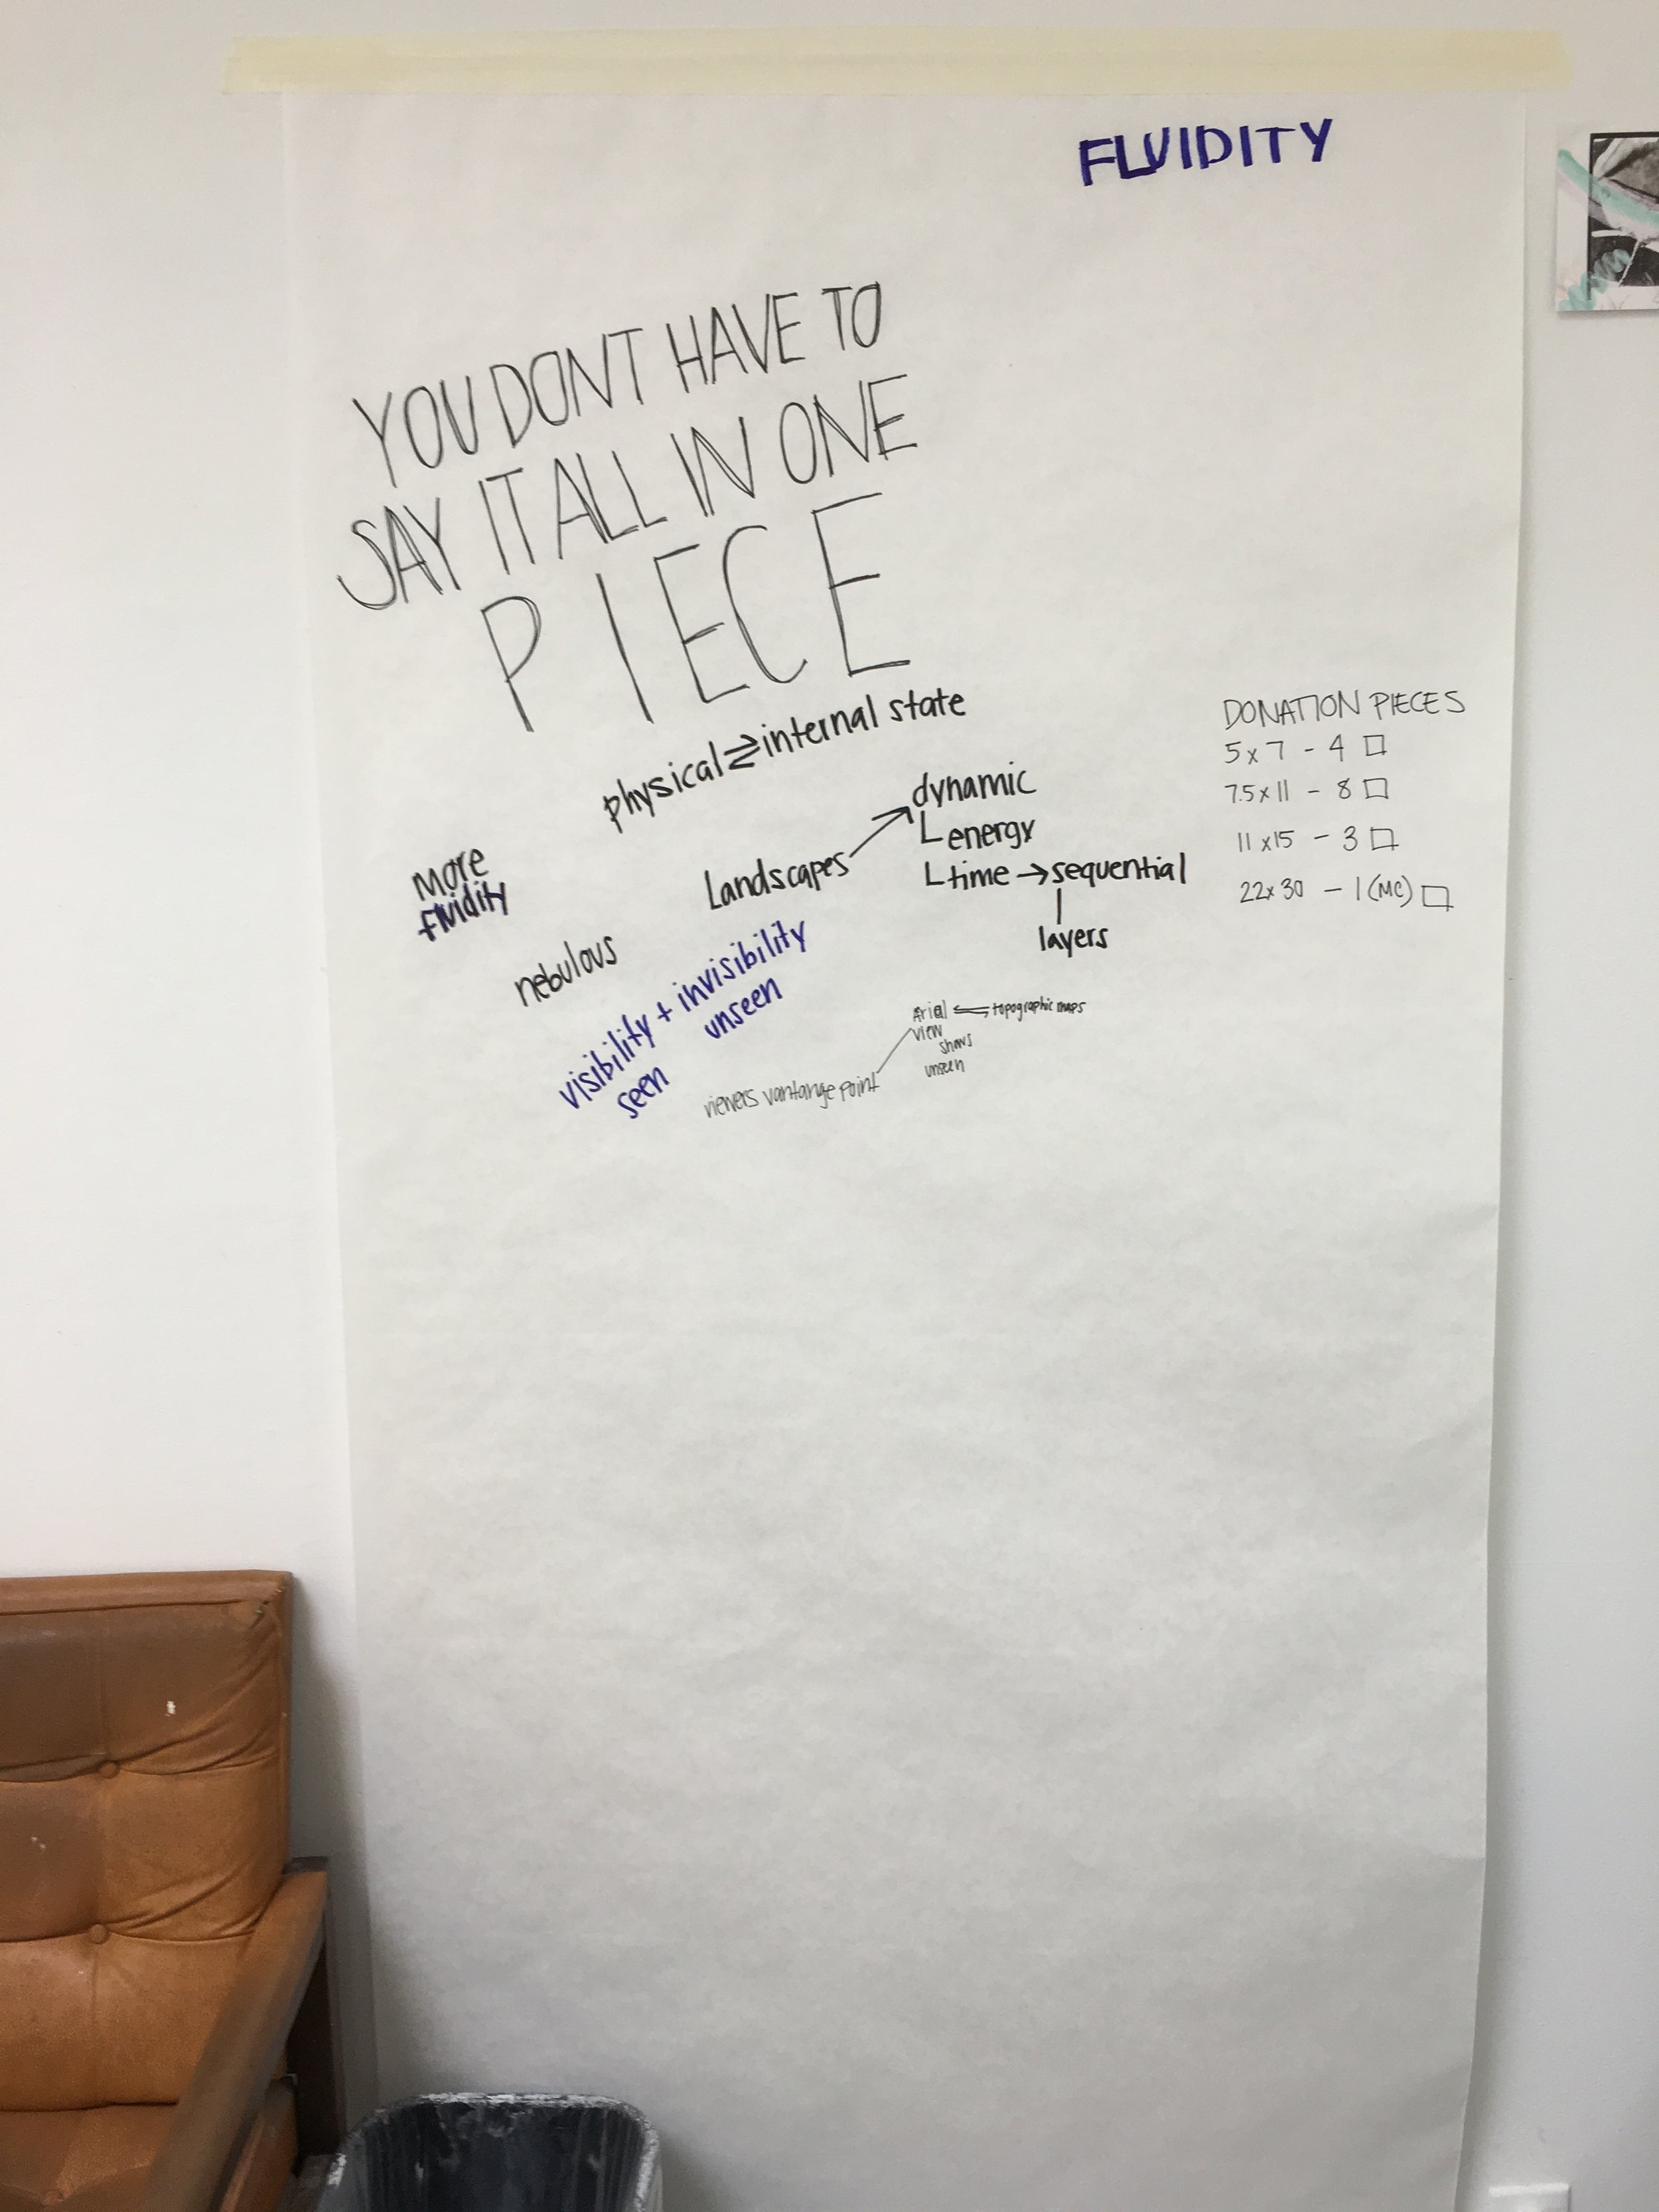 FLUIDITY
YOU DONT HAVE TO
SAY IT ALL IN ONE
PIECE
physical ⇄ internal state
More
fluidity
nebulous
Landscapes → dynamic
energy
time → sequential
layers
visibility + invisibility
seen
unseen
Arial ⇌ topographic maps
view
shows
unseen
viewers vantange point
DONATION PIECES
5x7 - 4 □
7.5x11 - 8 □
11x15 - 3 □
22x30 - 1 (MC) □